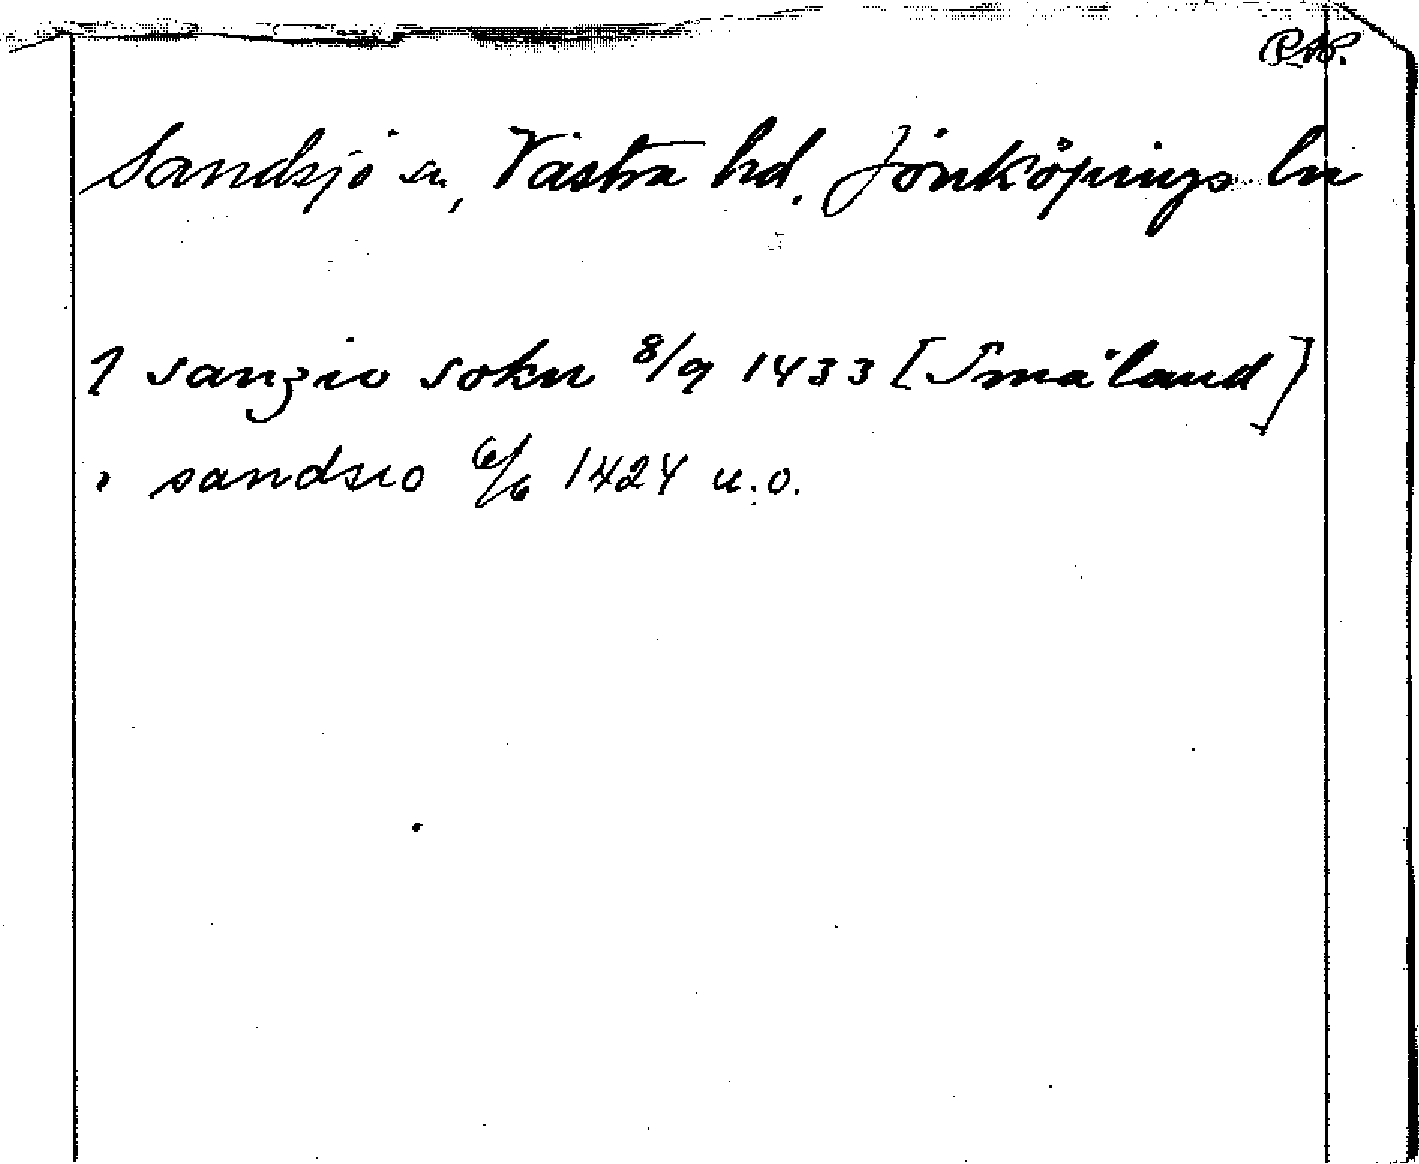 Sandsjö sn, Västra hd. Jönköpings ln
J sanzio sokn 8/9 1433 [Småland]
" sandsio 6/6 1424 u.o.